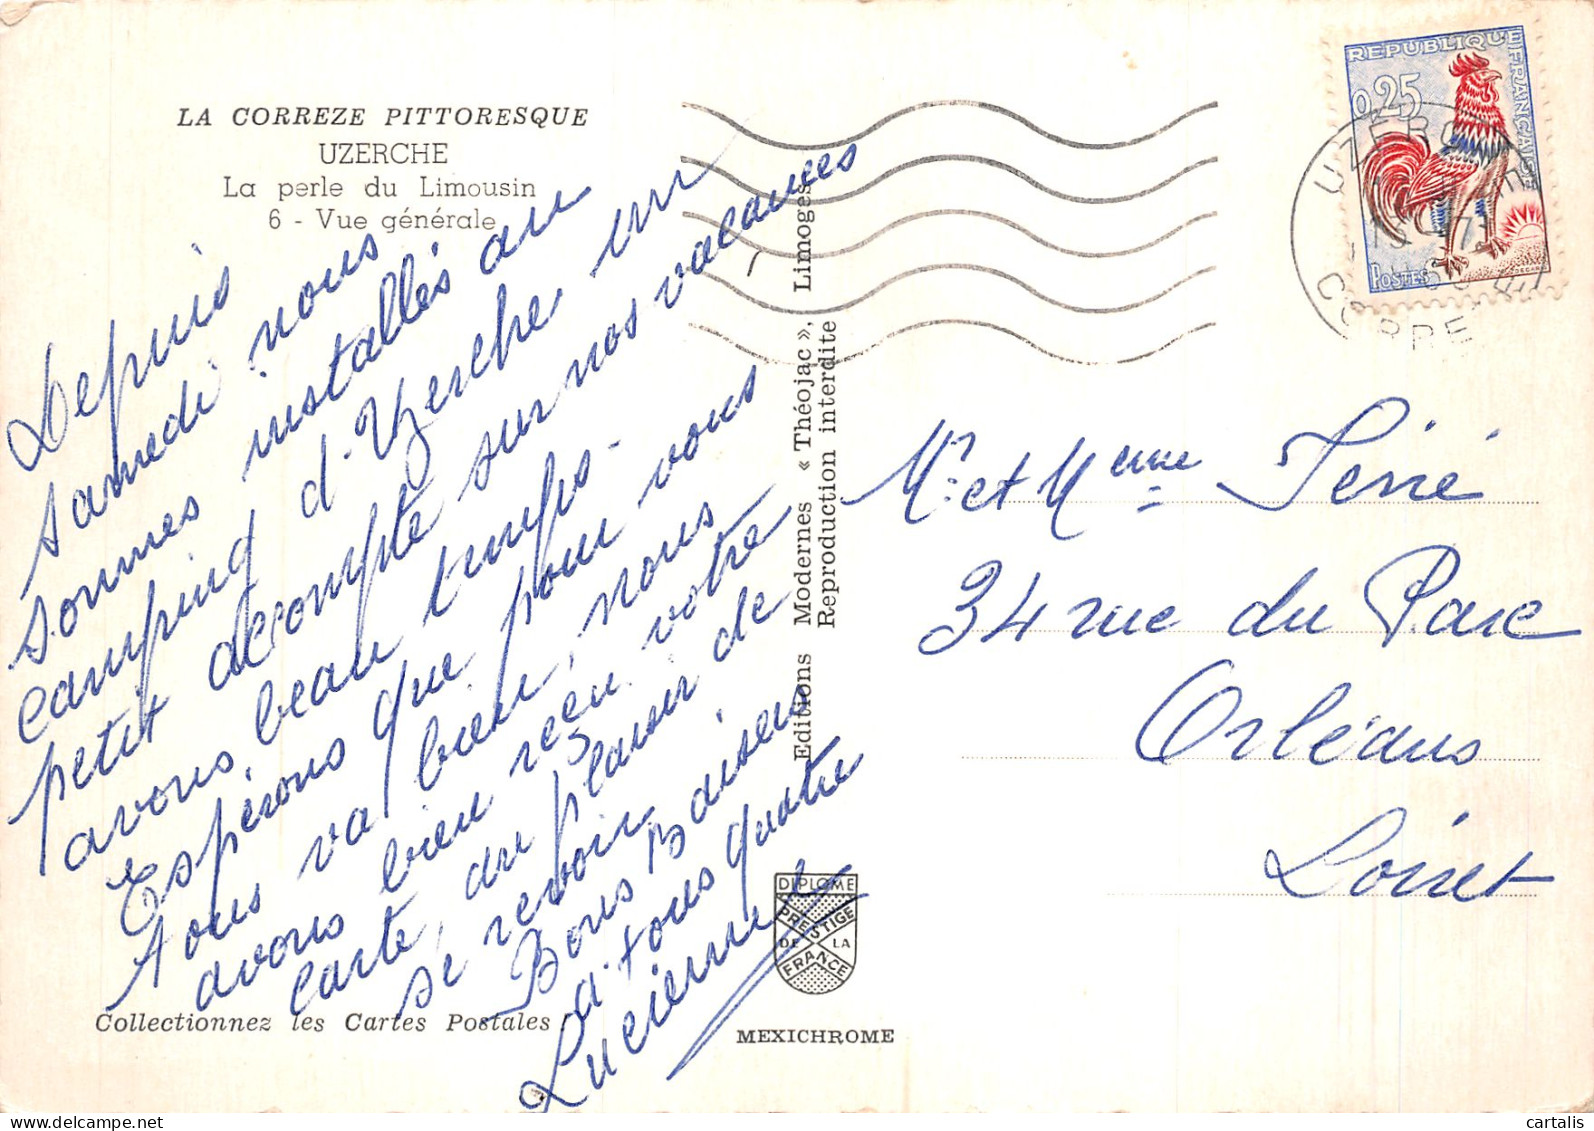 LA CORREZE PITTORESQUE
UZERCHE
La perle du Limousin
6 - Vue générale
Depuis
samedi nous
sommes installés au
camping d'Uzerche un
petit décompte sur nos vacances
avons beau temps -
Espérons que pour vous
tous va bien, nous
avons bien reçu votre
carte, du plaisir de
se revoir,
Bons Baisers
à tous quatre
Lucienne
Collectionnez les Cartes Postales !
Editions Modernes « Théojac », Limoges
Reproduction interdite
DIPLOME
PRESTIGE
DE LA
FRANCE
MEXICHROME
REPUBLIQUE FRANÇAISE
0,25
POSTES
DECARIS
UZERCHE
CORREZE
Mr et Mme
34 rue du Parc
Orléans
Loiret
cartalis